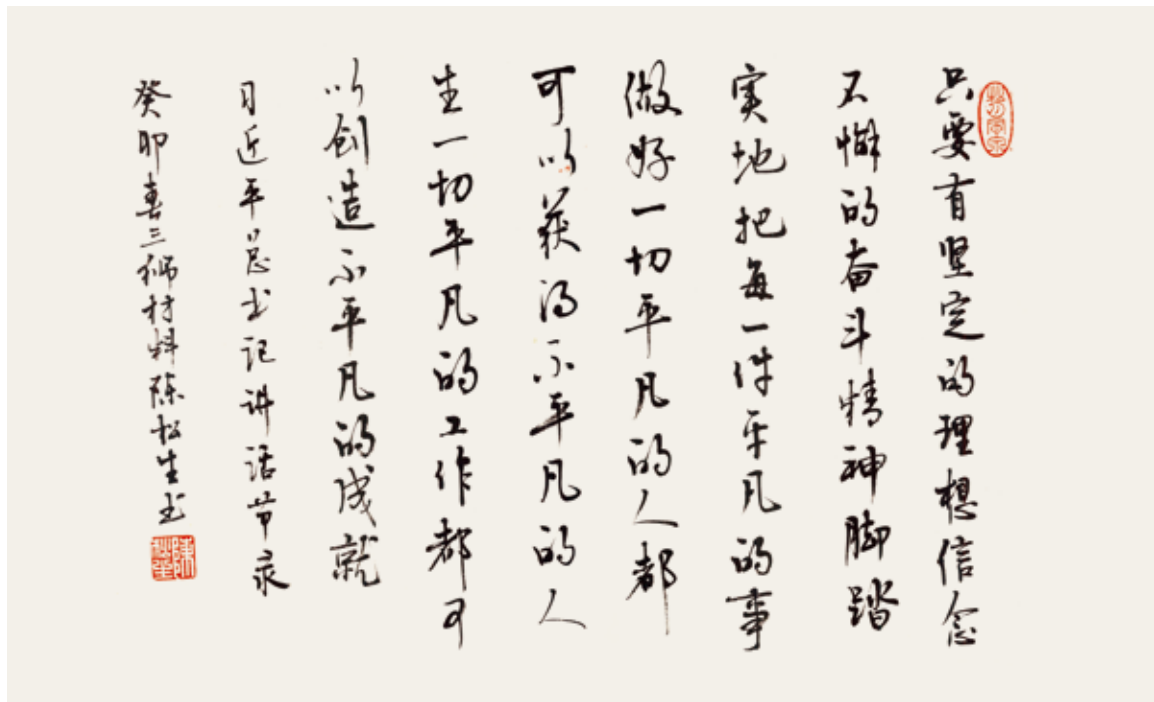 只要有坚定的理想信念
不懈的奋斗精神脚踏
实地把每一件平凡的事
做好一切平凡的人都
可以获得不平凡的人
生一切平凡的工作都可
以创造不平凡的成就
习近平总书记讲话节录
癸卯春三狮材料陈松生书
陳松生